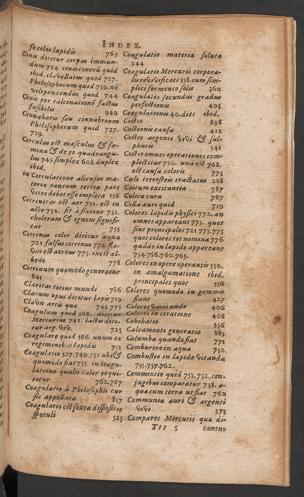 INDEX.
se color lapidis 765
Cinis dicitur corpus immundum
724. cinis cinerū quid
ibid. vellatus quid 727.
Philosophorum quid 739. nō
vilipendendus quid 744
Cinis per calcinationē factus
fusibilis 940
Cinnabaris seu cinnabrum
Philosophorum quid 727.
729.
Circulus est masculus & foemina
& de eo quadrangulum
745. simplex 608. duplex
ibid.
in Circulatione alicujus materia
tantum certina pars
vitro debet esse impleta 336
Citrinitas est aer 751. est in
albo 751. fit
choleram & ignem significat
755
Citrinus color dicitur aqua
721.
778
Citrinum quomodo generatur
841
Claritas totius mundi 786
Clarum opus dicitur lapis 719
Clavis artis qua 745 775
Coagulum quid 566. dicitur
Mercurius 741. lactis dicitur
725
Coagulare quid 566. unum ex
regiminibus lapidis 753
Coagulatio 527. 740. 751 ubi &
quomodo fiat 755 in coagulatione
qualis calor requiritur
762. 767
Coagulatio à Philosophis cur
sic appellata 857
Coagulatio est sexta dispositio
speculi 525
Coagulatio materia soluta
344
Coagulatio Mercurii corpora
358. cum simplici
fermento solis 360
Coagulatis secundus gradus
perfectionis 405
Coagulationū 40. dies ibid.
Coctio 898
Coctionis causa 412
Coctio argenti vivi & sulphuris
541
Coctio omnes operationes complectitur
750. una est 768.
est causa coloris 775
Coeli terrestris extractus 288
Coitum excitantia 787
Colica cura 787
Colla auri quid 719
Colores lapidis physici 772. an
omnes appareant 775. quot
sint principales 721. 773. 775
quot colores tot nomina 776
quādo in lapide appareant
754. 756. 760. 765.
Colores in opere operantis 550.
in amalgamatione ibid.
principales quot 536
Colores quomodo in gemmis
fiant 427
Colores varii unde 406
Colores in ceratione 408
Cohobatio 356
Calcamenti generatio 885
Columba quando fiat 771
Comburere in aqua 752
Combustio in lapide vitanda
755. 757. 762.
Commixtio quid 751. 752. conjugibus
comparatur 738. aqua
cum terra ut fiat 762
Communia auri & argenti
vivi 373
Compares Mercurii qua dicantur
Ttt 5 cantur